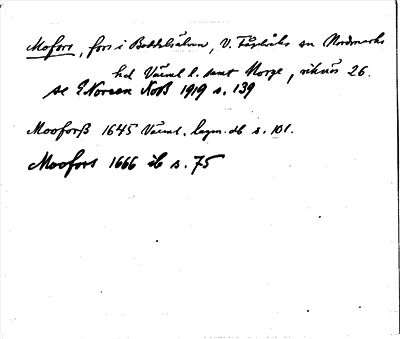 Mofors, fors i Bottelsälven, V. Fågelvik sn Nordmarks
hd Värml l. samt Norge, riksrös 26.
se E Noreen NoB 1919 s. 139
Mooforß 1645 Värml. lagm. db s. 101.
Moofors 1666 ib s. 75